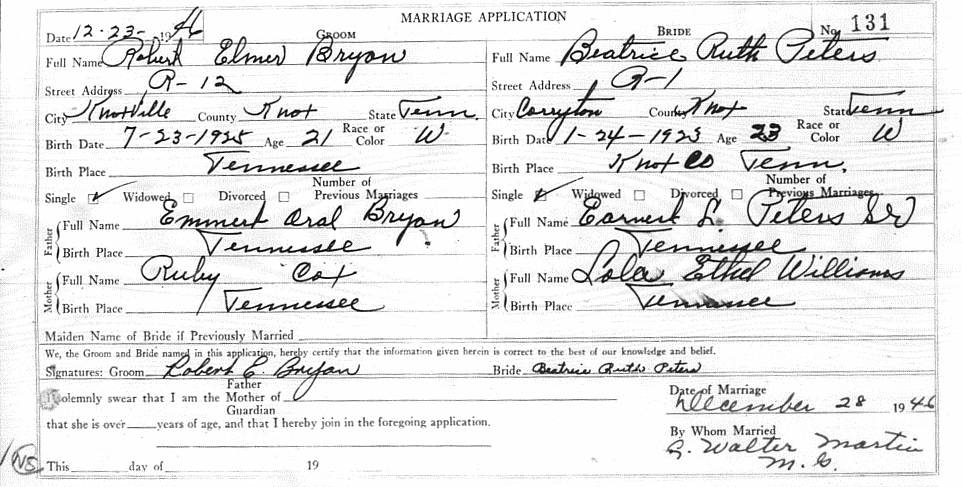 MARRIAGE APPLICATION
Date 12-23-1946 GROOM BRIDE No. 131
Full Name Robert Elmer Bryan Full Name Beatrice Ruth Peters
Street Address R-12 Street Address R-1
City Knoxville County Knox State Tenn. City Corryton County Knox State Tenn
Birth Date 7-23-1925 Age 21 Race or Color W Birth Date 1-24-1923 Age 23 Race or Color W
Birth Place Tennessee Birth Place Knox Co Tenn.
Single Widowed Divorced Number of Previous Marriages Single Widowed Divorced Number of Previous Marriages
Father Full Name Emmert Oral Bryan Father Full Name Earnest L. Peters Sr
Birth Place Tennessee Birth Place Tennessee
Mother Full Name Ruby Cox Mother Full Name Lola Ethel Williams
Birth Place Tennessee Birth Place Tennessee
Maiden Name of Bride if Previously Married
We, the Groom and Bride named in this application, hereby certify that the information given herein is correct to the best of our knowledge and belief.
Signatures: Groom Robert E. Bryan Bride Beatrice Ruth Peters
I solemnly swear that I am the Father Mother Guardian of
that she is over years of age, and that I hereby join in the foregoing application.
This day of 19
Date of Marriage
December 28 1946
By Whom Married
G. Walter Martin
M. G.